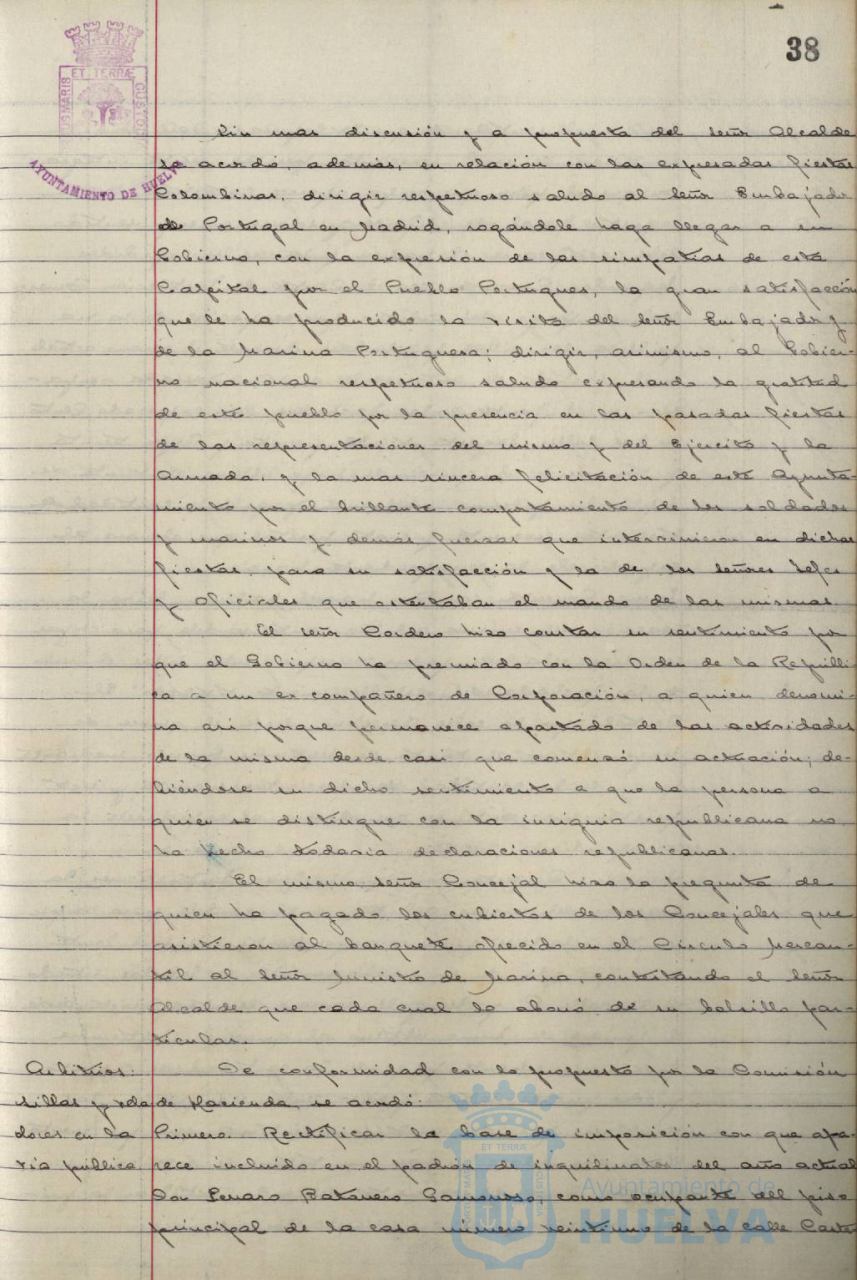 38
ET TERRÆ
AYUNTAMIENTO DE HUELVA
Sin mas discusión y a propuesta del señor Alcalde
se acordó, además, en relación con las expresadas fiestas
Colombinas, dirigir respetuoso saludo al Señor Embajador
de Portugal en Madrid, rogándole haga llegar a su
Gobierno, con la expresión de las simpatías de esta
Capital por el Pueblo Portugues, la gran satisfacción
que le ha producido la visita del Señor Embajador y
de la Marina Portuguesa; dirigir, asimismo, al Gobier-
no nacional respetuoso saludo expresando la gratitud
de este pueblo por la presencia en las pasadas fiestas
de las representaciones del mismo y del Ejercito y la
Armada, y la mas sincera felicitación de este Ayunta-
miento por el brillante comportamiento de los soldados
y marinos y demás fuerzas que intervinieron en dichas
fiestas, para su satisfacción y la de los señores Jefes
y Oficiales que ostentaban el mando de las mismas.
El señor Cordero hizo constar su sentimiento por
que el Gobierno ha premiado con la Orden de la Republi-
ca a un ex compañero de Corporación, a quien denomi-
na asi porque permanece apartado de las actividades
de la misma desde casi que comenzó su actuación; de-
biéndose su dicho sentimiento a que la persona a
quien se distingue con la insignia republicana no
ha hecho todavia declaraciones republicanas.
El mismo señor Concejal hizo la pregunta de
quien ha pagado los cubiertos de los Concejales que
asistieron al banquete ofrecido en el Circulo Mercan-
til al Señor Ministro de Marina, contestando el Señor
Alcalde que cada cual lo abonó de su bolsillo par-
ticular.
Arbitrios: De conformidad con lo propuesto por la Comisión
sillas y vela de Hacienda, se acordó:
dores en la Primero. Rectificar la base de imposición con que apa-
via pública. rece incluido en el padrón de inquilinatos del año actual
Don Genaro Batanero Gamonoso, como ocupante del piso
principal de la casa número veintiuno de la calle Caste
ET TERRA
Ayuntamiento de
HUELVA